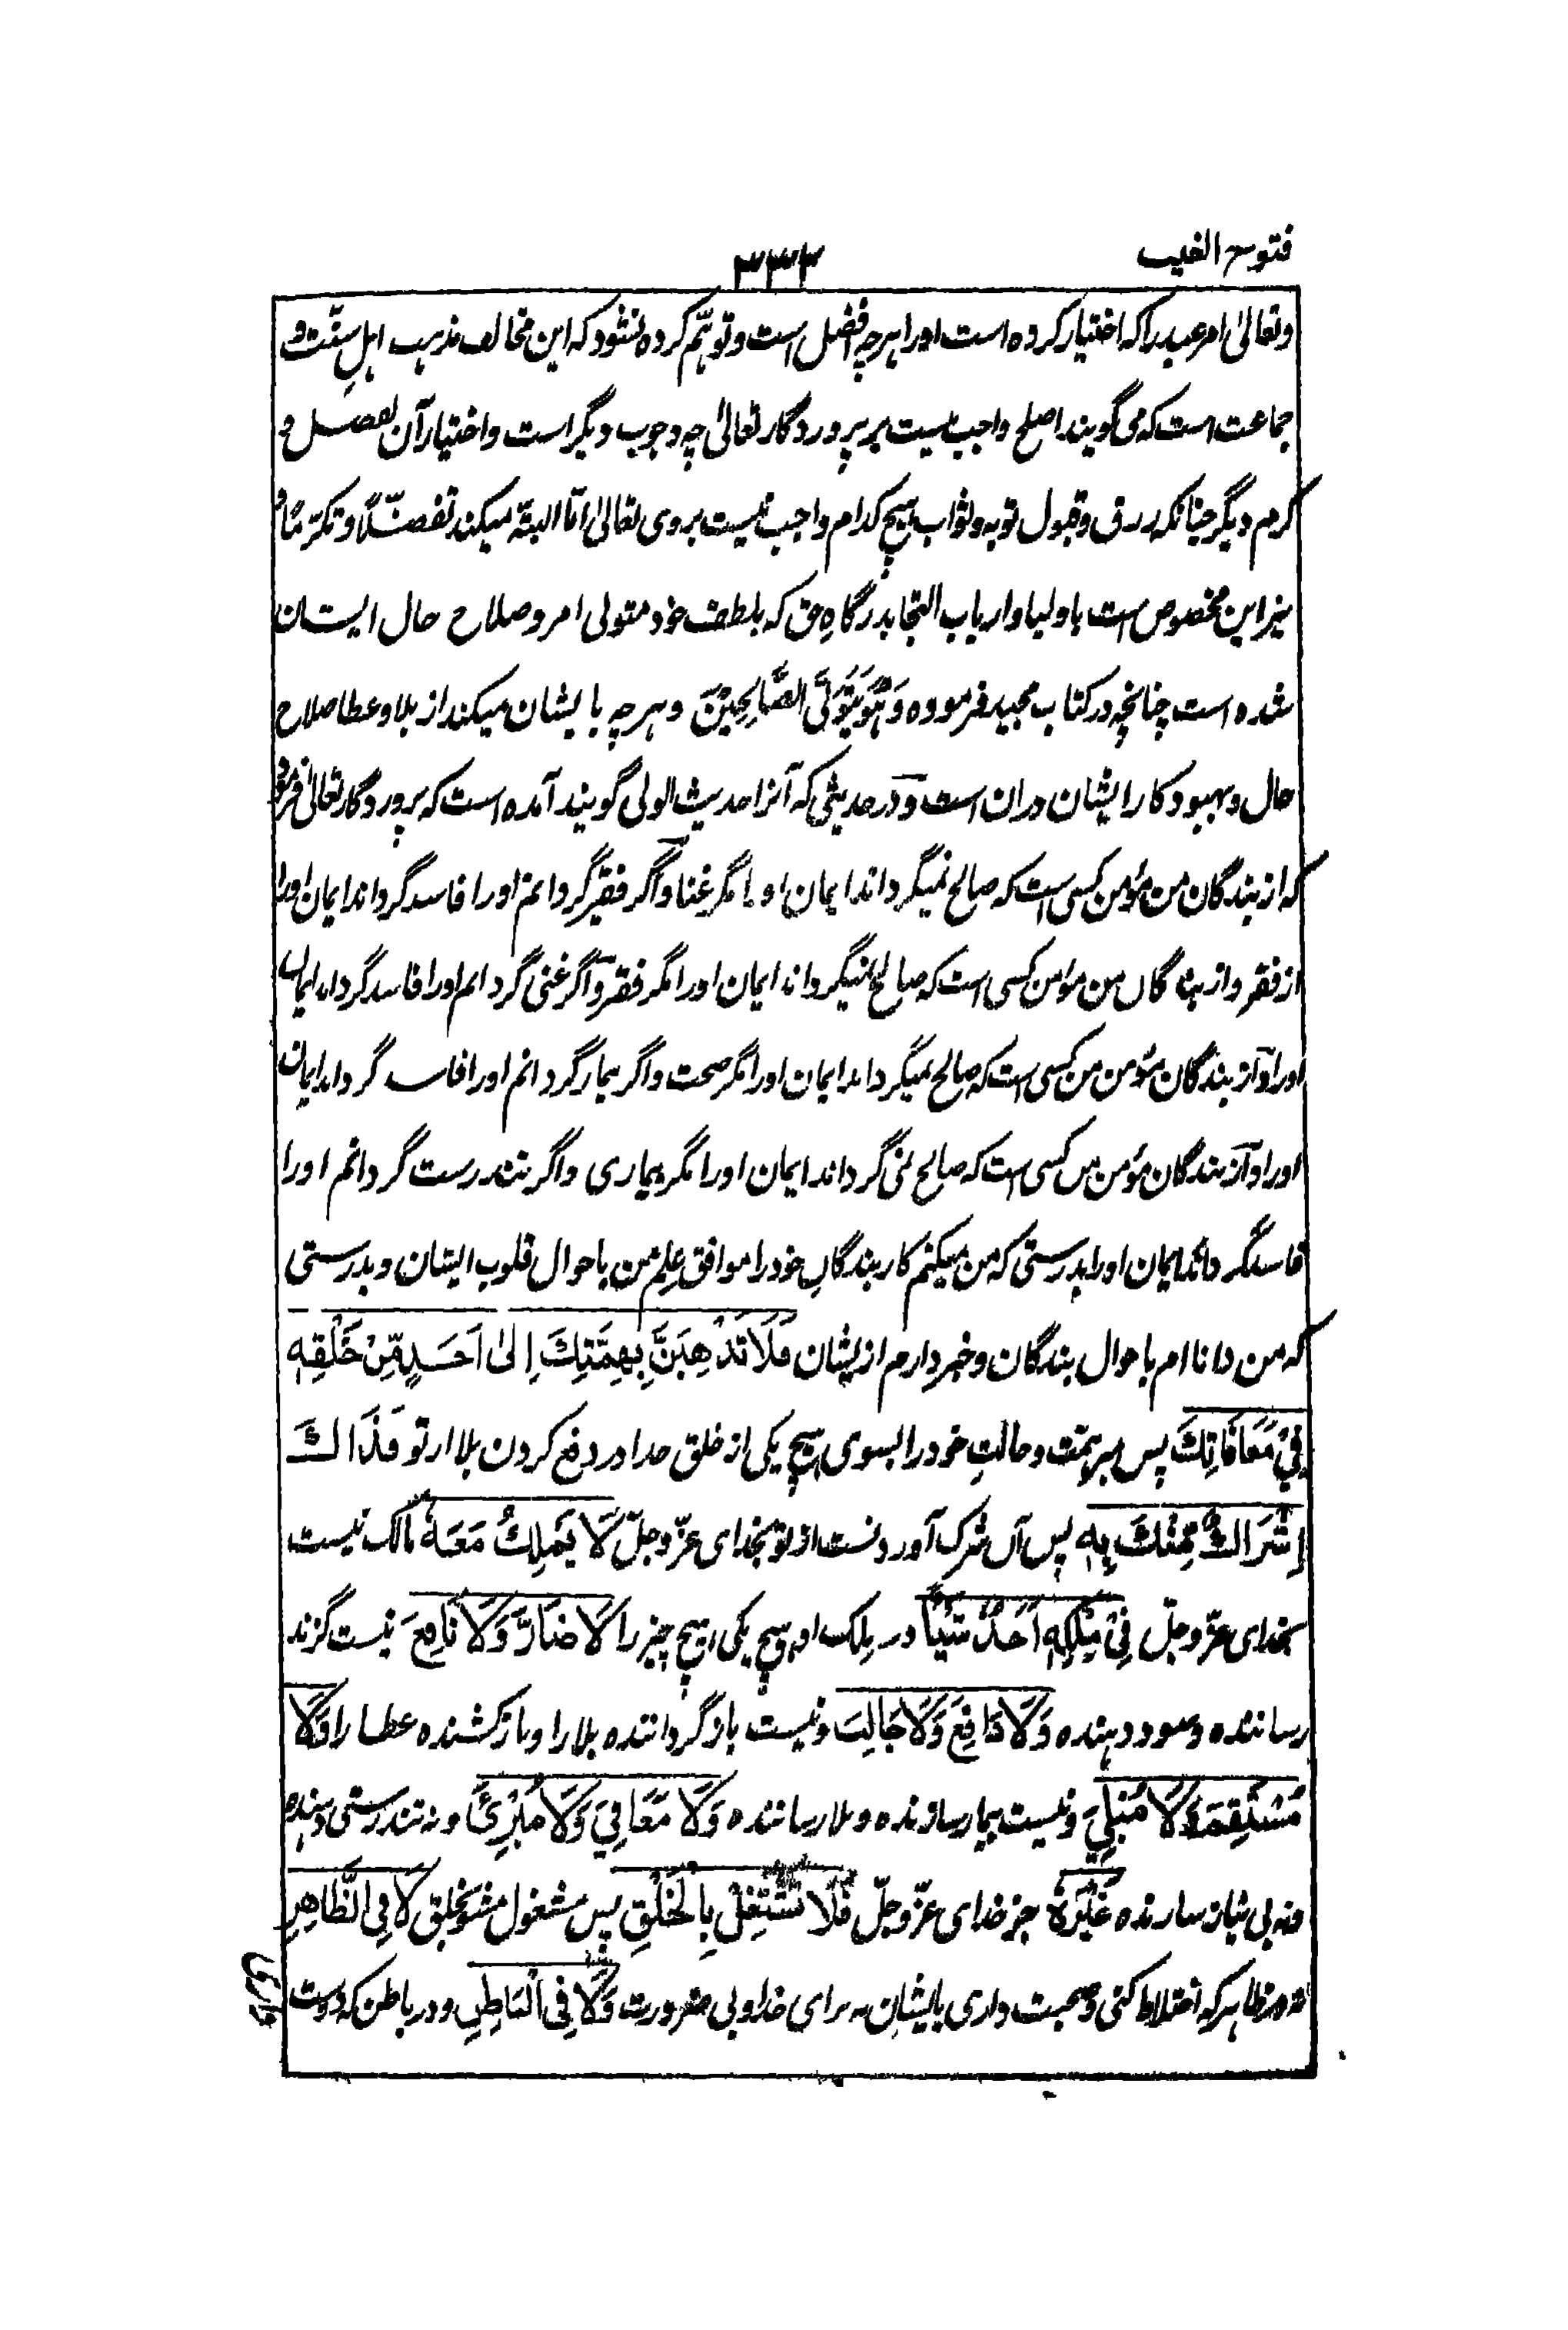 فتوح الغیب
۳۳۳
وتعالیٰ امر عبد را که اختیار کرده است اورا هرچه افضل است و توهّم کرده نشود که این مخالف مذهب اهلِ سنّت و
جماعت است که می گویند اصلح واجب نیست بر پروردگار تعالیٰ چه وجوب دیگر است و اختیار آن بفضل و
کرم دیگر چنانکه رزق و قبول توبه و ثواب هیچ کدام واجب نیست بروی تعالیٰ امّا البتّه میکند تفضّلاً و تکرّماً و
نیز این مخصوص است باولیا و ارباب التجا بدرگاهِ حق که بلطف خود متولی امر و صلاح حال ایشان
شده است چنانچه در کتاب مجید فرموده وَهُوَ یَتَوَلَّی الصَّالِحِیْنَ و هرچه بایشان میکند از بلا و عطا صلاح
حال و بهبود کار ایشان دران است و در حدیثی که آنرا حدیث الولی گویند آمده است که پروردگار تعالیٰ فرمود
که از بندگان من مؤمن کسی است که صالح نمیگرداند ایمان اورا مگر غنا و اگر فقیر گردانم اورا فاسد گرداند ایمان اورا
از فقر و از بندگان من مؤمن کسی است که صالح نمیگرداند ایمان اورا مگر فقر و اگر غنی گردانم اورا فاسد گرداند ایمان
اورا و از بندگان مؤمن من کسی است که صالح نمیگرداند ایمان اورا مگر صحت و اگر بیمار گردانم اورا فاسد گرداند ایمان
اورا و از بندگان مؤمن من کسی است که صالح نمی گرداند ایمان اورا مگر بیماری و اگر تندرست گردانم اورا
فاسد گرداند ایمان اورا بدرستی که من میکنم کار بندگانِ خود را موافق علم من باحوال قلوب ایشان و بدرستی
که من دانا ام باحوال بندگان و خبردارم از یشان فَلَا تَذْهَبَنَّ بِهِمَّتِكَ اِلیٰ اَحَدٍ مِّنْ خَلْقِهٖ
فِیْ مُعَافَاتِكَ پس مبر همّت و حالتِ خود را بسوی هیچ یکی از خلق خدا در دفع کردن بلا از تو فَذَاكَ
اِشْرَاكٌ مِّنْكَ بِهٖ پس آن شرک آوردنست از تو بخدای عزّوجلّ لَا یَمْلِكُ مَعَهٗ مالک نیست
بخدای عزّوجلّ فِیْ مُلْكِهٖ اَحَدٌ شَیْئًا در ملک او هیچ یکی هیچ چیز را لَا ضَارَّ وَلَا نَافِعَ نیست گزند
رساننده و سود دهنده وَلَا دَافِعَ وَلَا جَالِبَ و نیست بازگرداننده بلا را و باز کشنده عطا را وَلَا
مُسْقِمَ وَلَا مُبْلِیَ و نیست بیمار سازنده و بلا رساننده وَلَا مُعَافِیَ وَلَا مُبْرِئَ و نه تندرستی دهنده
و نه بی نیاز سازنده غَیْرَهٗ جز خدای عزّوجلّ فَلَا تَشْتَغِلْ بِالْخَلْقِ پس مشغول مشو بخلق لَا فِی الظَّاهِرِ
نه در ظاهر که اختلاط کنی و صحبت داری بایشان نه برای خدا و بی ضرورت وَلَا فِی الْبَاطِنِ و در باطن که دوست